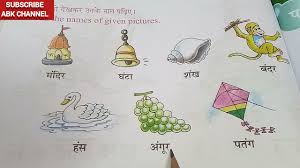 SUBSCRIBE
ABK CHANNEL
देखकर उनके नाम पढ़िए।
he names of given pictures.
मंदिर घंटा शंख बंदर
हंस अंगूर पतंग